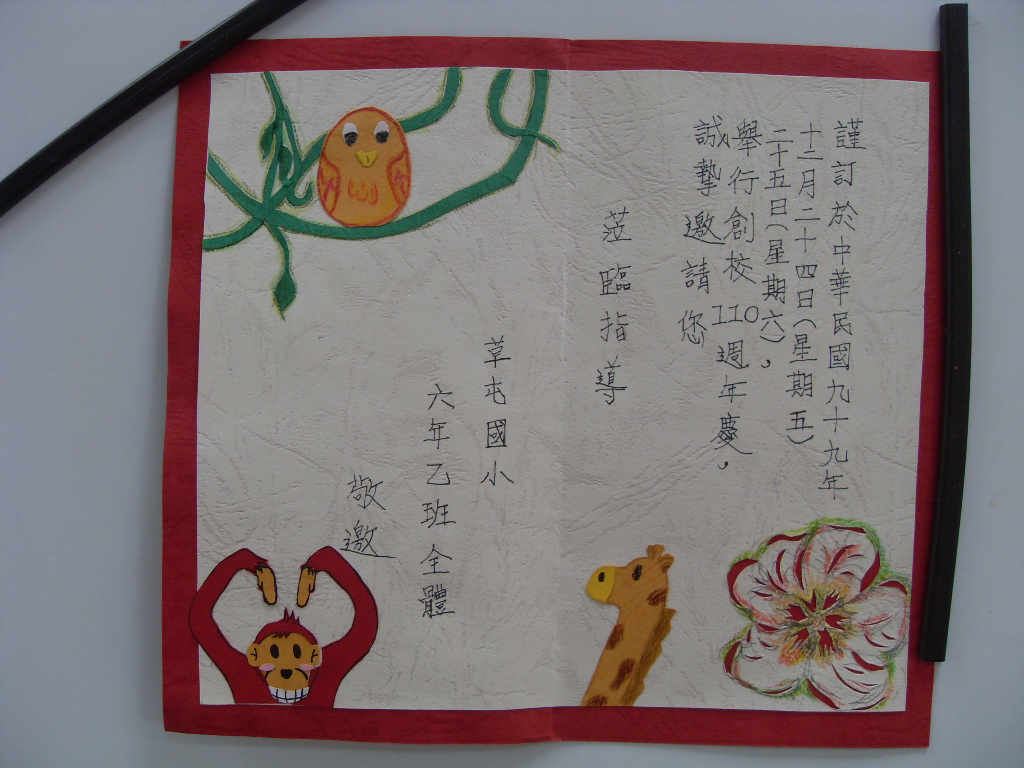 謹訂於中華民國九十九年
十二月二十四日(星期五)
二十五日(星期六)，
舉行創校110週年慶，
誠摯邀請您
蒞臨指導
草屯國小
六年乙班全體
敬邀